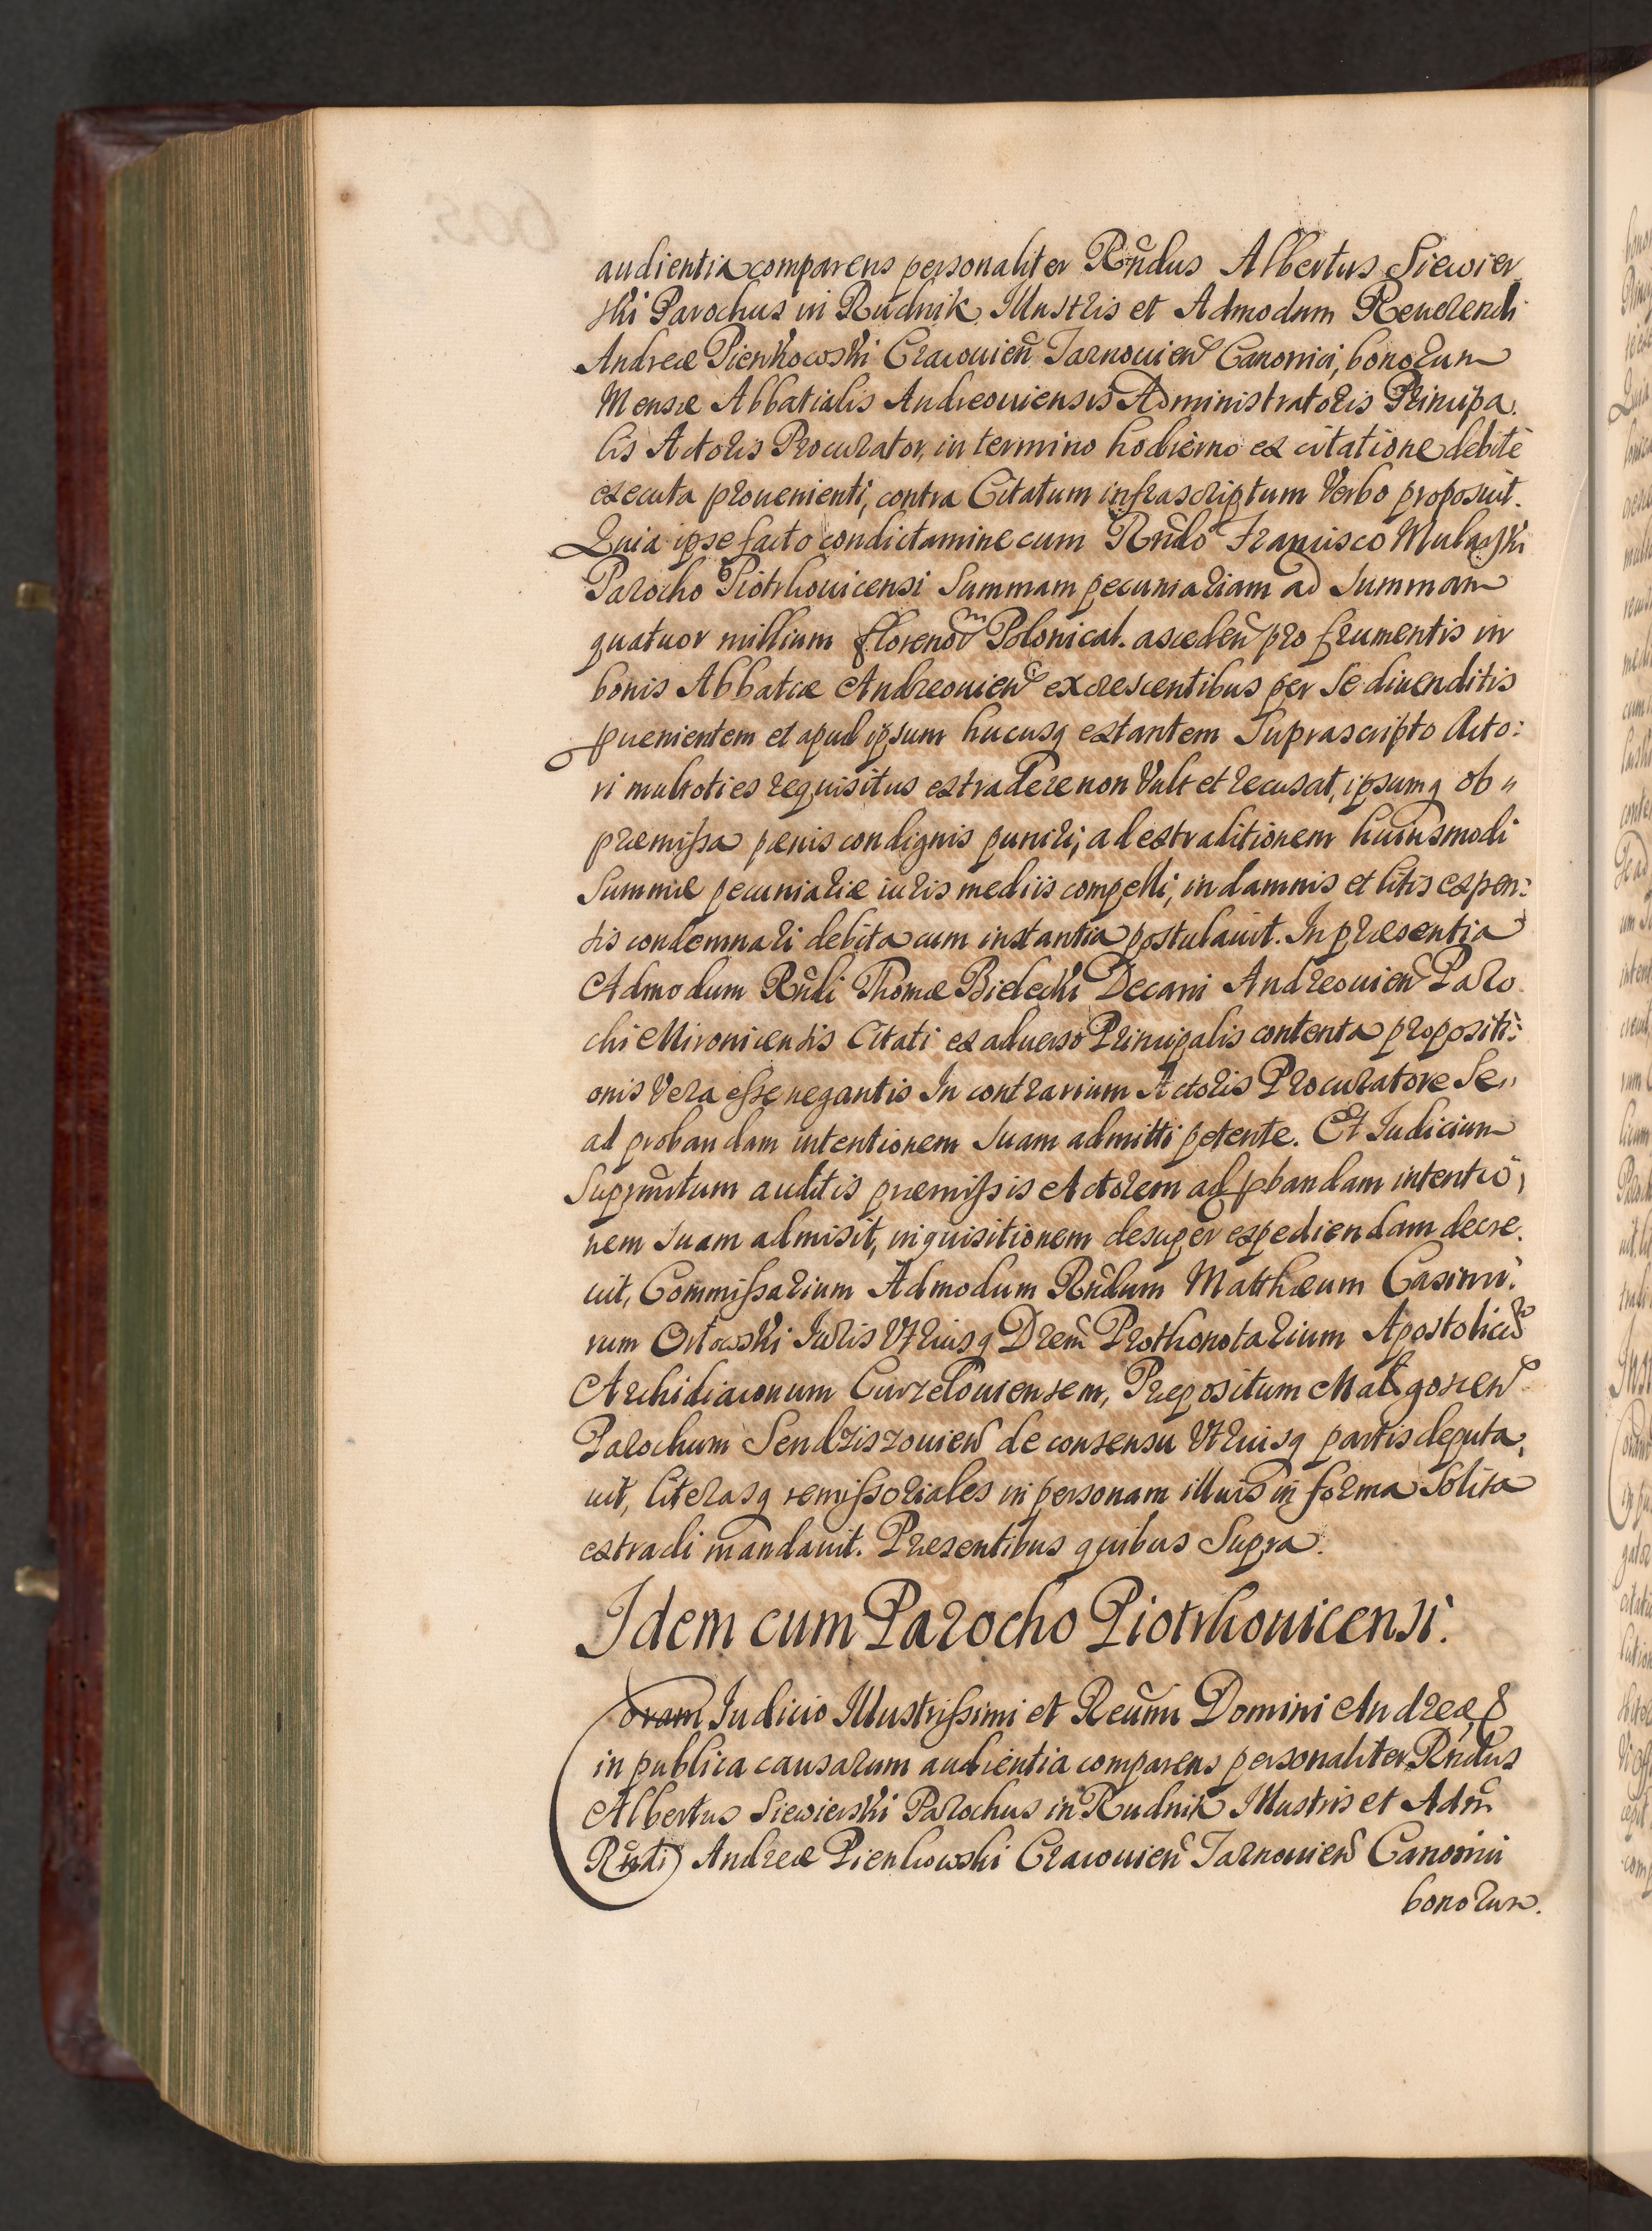 audientia comparens personaliter Rñdus Albertus Siewier
ski Parochus in Rudnik Illustris et Admodum Reuerendi
Andreæ Pienkowski Cracouieñ Tarnouieñ Canonici, bonorum
Mensæ Abbatialis Andreouiensis Administratoris Principa.
lis Actoris Procurator, in termino hodierno ex citatione debite
executa prouenienti, contra Citatum infrascriptum Verbo proposuit.
Quia ipse facto condictamine cum Rñdo Francisco
Parocho Piotrkouicensi Summam pecuniariam ad summam
quatuor millium florenor Polonical. ascedeñ pro frumentis in
bonis Abbatiæ Andreouieñ excrescentibus per Se diuenditis
puenientem et apud ipsum hucusq extantem Suprascripto Acto:
ri multoties requisitus extradere non Vult et recusat, ipsumq ob
præmissa pænis condignis puniri, ad extraditionem huiusmodi
Summæ pecuniariæ iuris mediis compelli, in damnis et litis expen:
sis condemnari debita cum instantia postulauit. In præsentia
Admodum Rñdi Thomæ Bielecki Decani Andreouieñ Paro
chi Mironicensis Citati ex aduerso Principalis contenta propositi:
onis Vera esse negantis In contrarium Actoris Procuratore Se
ad probandam intentionem suam admitti petente. Et Iudicium
Suprañtum auditis præmissis Actorem ad pbandam intentio,
nem suam admisit, inquisitionem desuper expediendam decre.
uit, Commissarium Admodum Rñdum Matthæum Casimi:
rum Orłowski Iuris Vtriusq Drem Prothonotarium Apostolicũ
Archidiaconum Curzelouiensem, Præpositum Małgosceñ
Parochum Sendziszouieñ de consensu Vtriusq partis deputa,
uit, literasq remissoriales in personam illius in forma solita
extradi mandauit. Presentibus quibus Supra.
Idem cum Parocho Piotrkouicensi.
Coram Iudicio Illustrissimi et Reũmi Domini Andreæ &
in publica causarum audientia comparens personaliter Rñdus
Albertus Siewierski Parochus in Rudnik Illustris et Adm̃
Rñdi Andreæ Pienkowski Cracouieñ Tarnouieñ Canonici
bonorum.